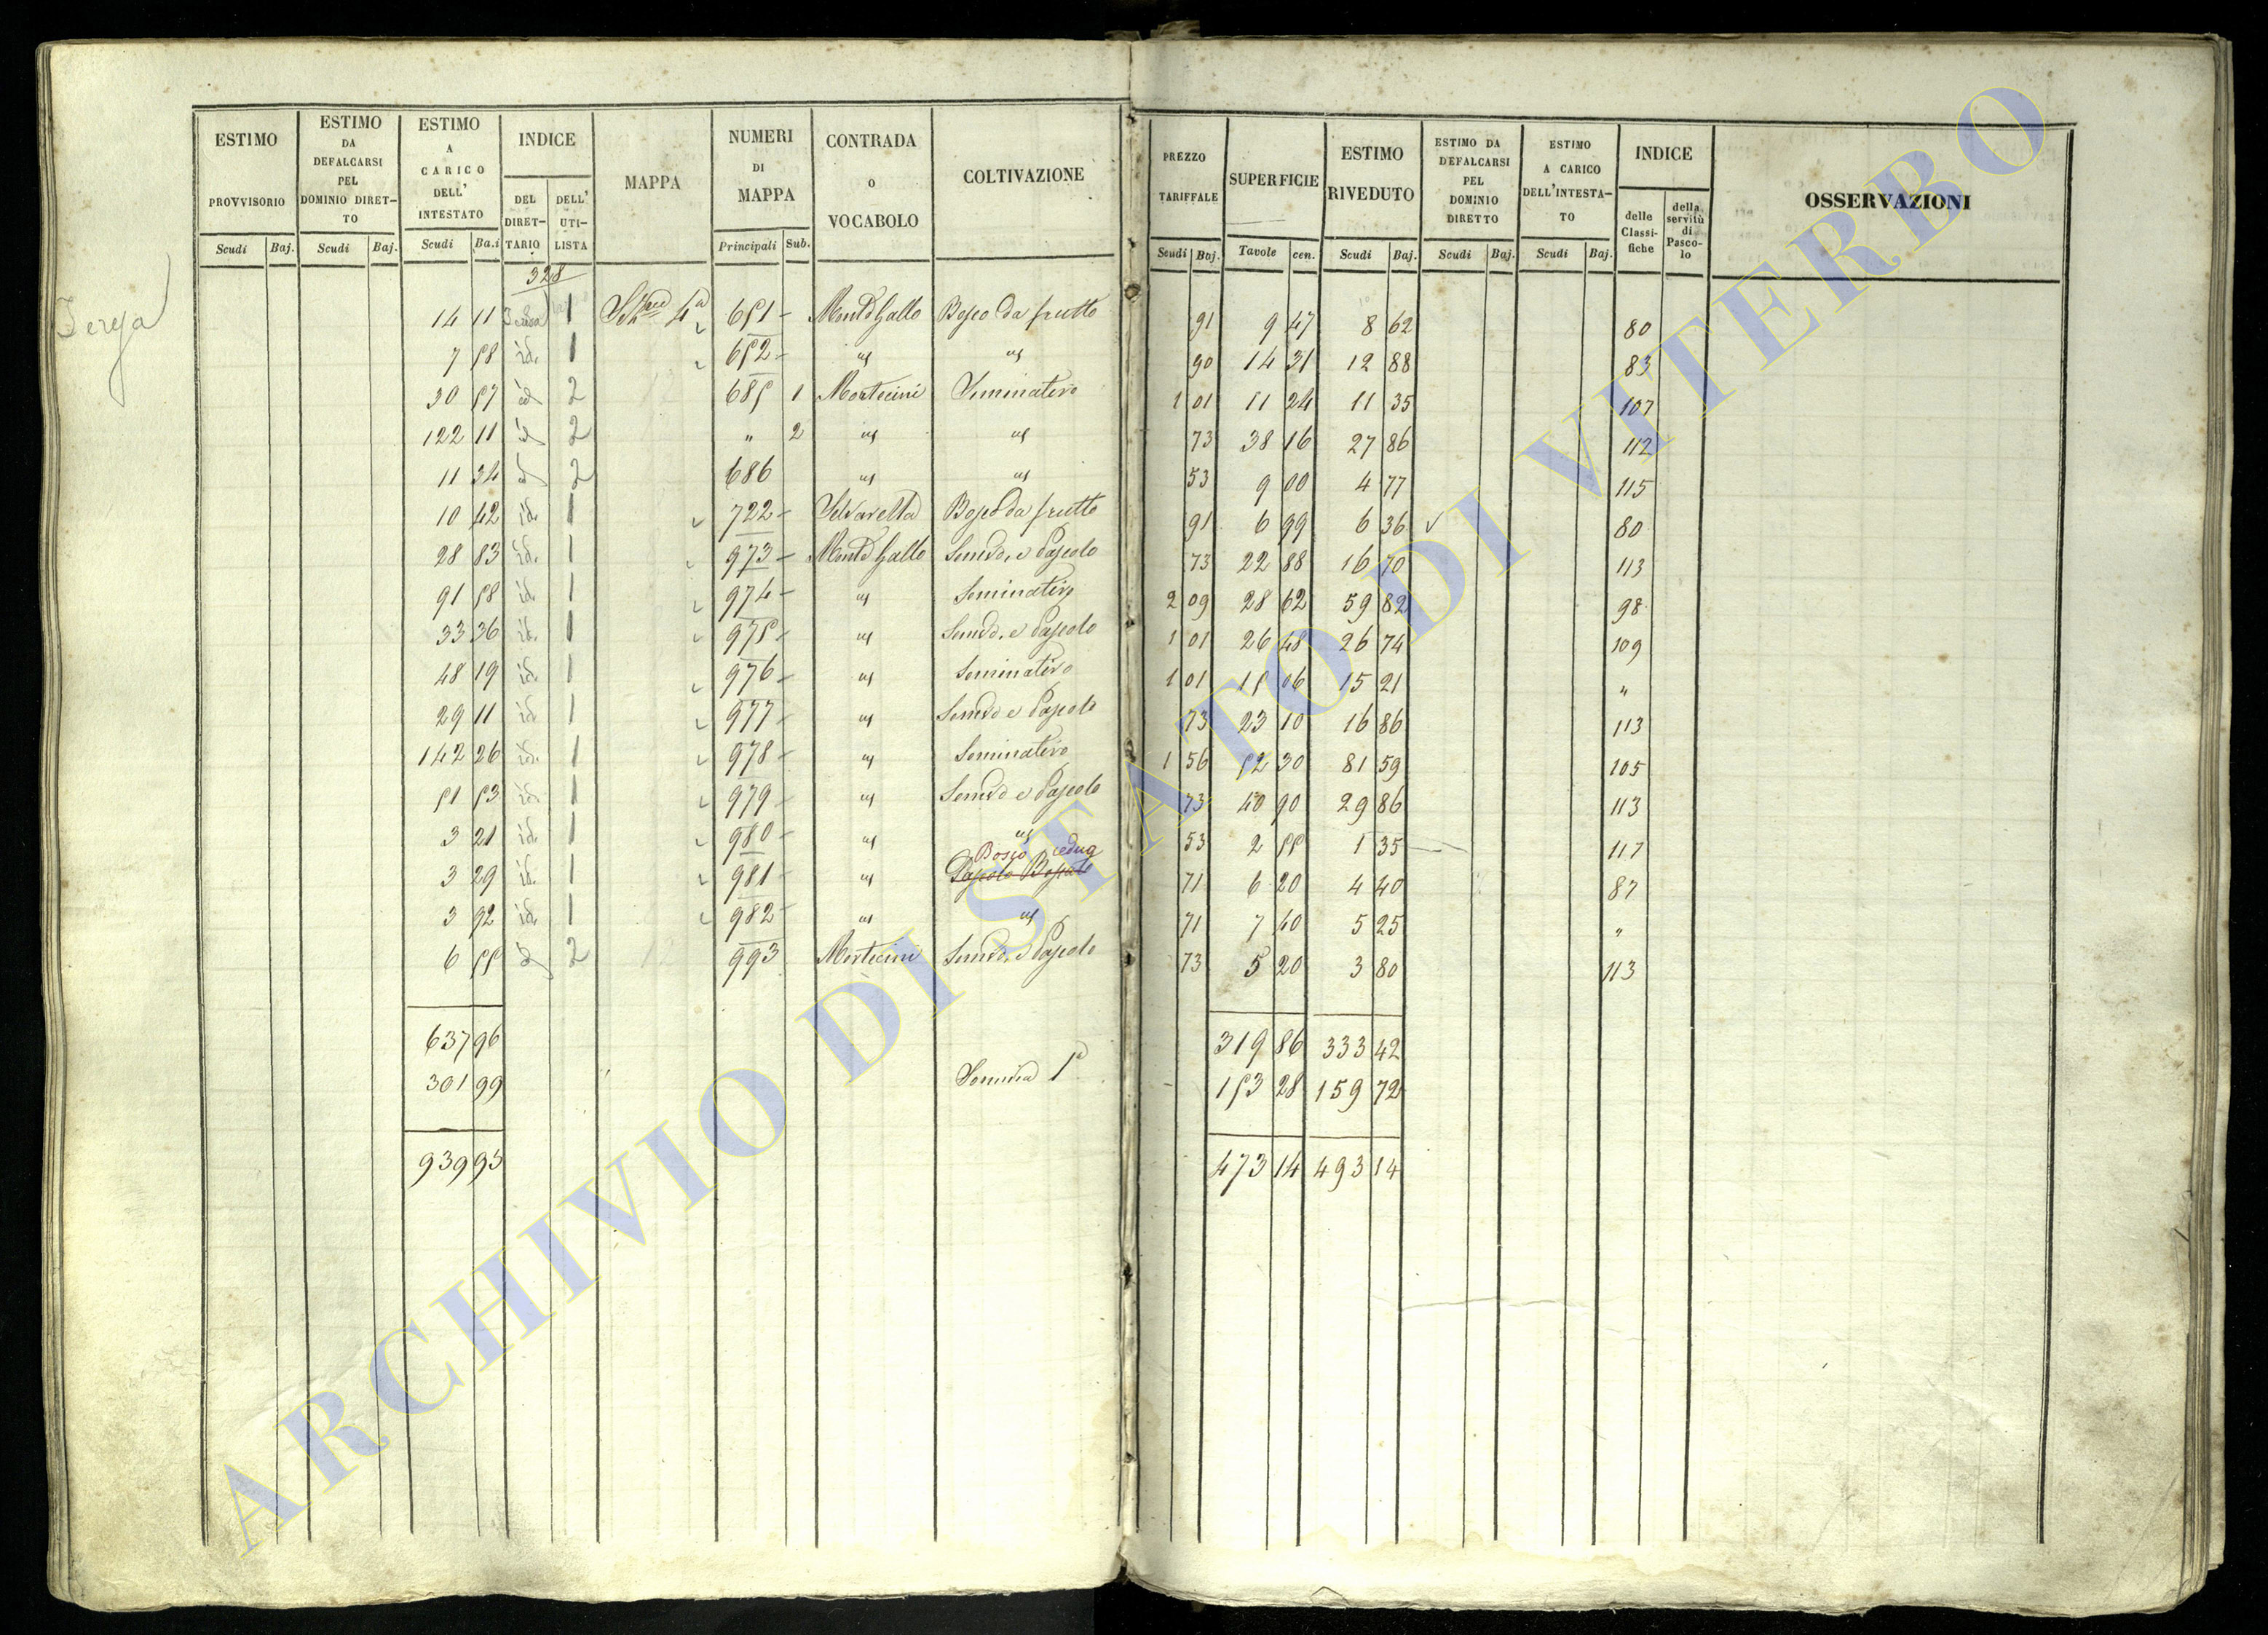 ESTIMO PROVVISORIO | ESTIMO DA DEFALCARSI PEL DOMINIO DIRET-TO | ESTIMO A CARICO DELL' INTESTATO | INDICE | MAPPA | NUMERI DI MAPPA | CONTRADA O VOCABOLO | COLTIVAZIONE | PREZZO TARIFFALE | SUPERFICIE | ESTIMO RIVEDUTO | ESTIMO DA DEFALCARSI PEL DOMINIO DIRETTO | ESTIMO A CARICO DELL'INTESTA-TO | INDICE | OSSERVAZIONI
DEL DIRET-TARIO | DELL' UTI-LISTA | delle Classi-fiche | della servitù di Pasco-lo
Scudi | Baj. | Scudi | Baj. | Scudi | Ba.i | Principali | Sub. | Scudi | Baj. | Tavole | cen. | Scudi | Baj. | Scudi | Baj. | Scudi | Baj.
328
14 11 | 1 | 4a | 651 | Monte Gallo | Bosco da frutto | 91 | 9 47 | 8 62 | 80
7 58 | id. | 1 | 652 | " | " | 90 | 14 31 | 12 88 | 83
30 57 | id | 2 | 685 | 1 | Morticini | Seminativo | 1 01 | 11 24 | 11 35 | 107
122 11 | id | 2 | " | 2 | " | " | 73 | 38 16 | 27 86 | 112
11 34 | id | 2 | 686 | " | " | 53 | 9 00 | 4 77 | 115
10 42 | id. | 1 | 722 | Selvarella | Bosco da frutto | 91 | 6 99 | 6 36 | 80
28 83 | id. | 1 | 973 | Monte Gallo | Semvo. e Pascolo | 73 | 22 88 | 16 70 | 113
91 58 | id. | 1 | 974 | " | Seminativo | 2 09 | 28 62 | 59 82 | 98
33 36 | id. | 1 | 975 | " | Semvo. e Pascolo | 1 01 | 26 48 | 26 74 | 109
48 19 | id. | 1 | 976 | " | Seminativo | 1 01 | 15 06 | 15 21 | "
29 11 | id | 1 | 977 | " | Semvo e Pascolo | 73 | 23 10 | 16 86 | 113
142 26 | id. | 1 | 978 | " | Seminativo | 1 56 | 52 30 | 81 59 | 105
51 53 | id. | 1 | 979 | " | Semvo e Pascolo | 73 | 40 90 | 29 86 | 113
3 21 | id. | 1 | 980 | " | " | 53 | 2 55 | 1 35 | 117
Bosco ceduo
3 29 | id. | 1 | 981 | " | Pascolo Boscato | 71 | 6 20 | 4 40 | 87
3 92 | id. | 1 | 982 | " | " | 71 | 7 40 | 5 25 | "
6 55 | id | 2 | 993 | Morticini | Semvo. e Pascolo | 73 | 5 20 | 3 80 | 113
637 96 | 319 86 | 333 42
301 99 | 153 28 | 159 72
939 95 | 473 14 | 493 14
ARCHIVIO DI STATO DI VITERBO